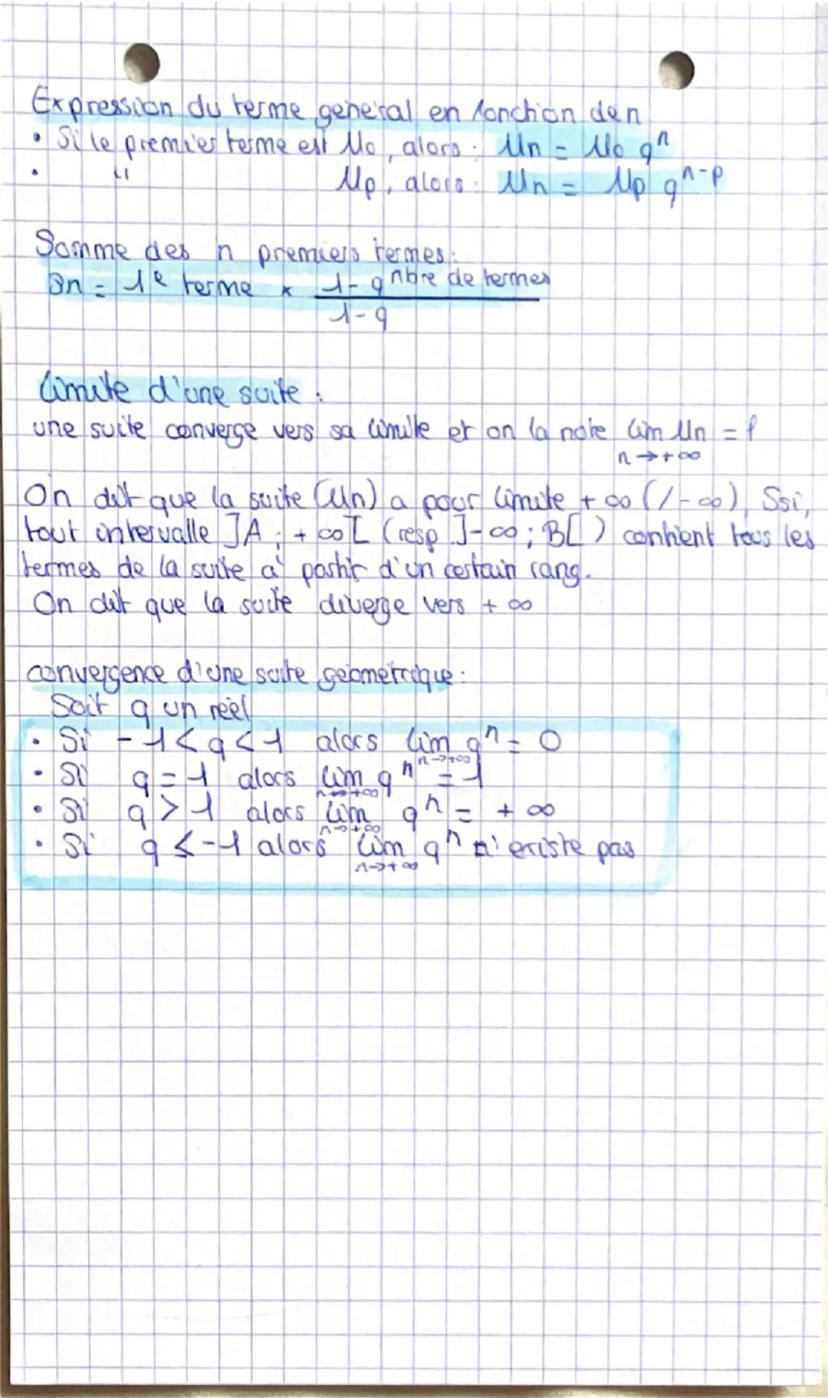 Expression du terme general en fonction de n
• Si le premier terme est U0, alors : Un = U0 q^n
• " Up, alors : Un = Up q^n-p
Somme des n premiers termes :
Sn = 1e terme × (1-q^nbre de termes)/(1-q)
Limite d'une suite :
une suite converge vers sa limite et on la note lim Un = l
n→+∞
On dit que la suite (Un) a pour limite +∞ (/-∞), Ssi,
tout intervalle ]A ; +∞[ (resp ]-∞ ; B[ ) contient tous les
termes de la suite à partir d'un certain rang.
On dit que la suite diverge vers +∞
convergence d'une suite géométrique :
Soit q un réel
• Si -1<q<1 alors lim n→+∞ q^n = 0
• Si q=1 alors lim n→+∞ q^n = 1
• Si q>1 alors lim n→+∞ q^n = +∞
• Si q≤-1 alors lim n→+∞ q^n n'existe pas